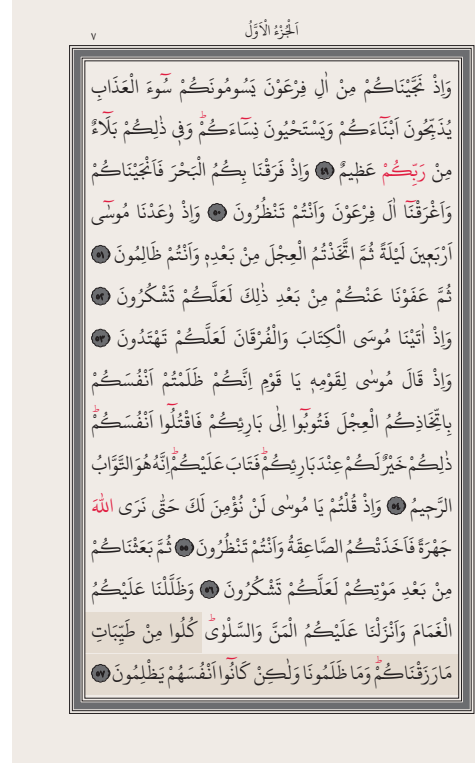 اَلْجُزْءُ الْاَوَّلُ
٧
وَاِذْ نَجَّيْنَاكُمْ مِنْ اٰلِ فِرْعَوْنَ يَسُومُونَكُمْ سُٓوءَ الْعَذَابِ
يُذَبِّحُونَ اَبْنَٓاءَكُمْ وَيَسْتَحْيُونَ نِسَٓاءَكُمْۜ وَف۪ي ذٰلِكُمْ بَلَٓاءٌ
مِنْ رَبِّكُمْ عَظ۪يمٌ ﴿٤٩﴾ وَاِذْ فَرَقْنَا بِكُمُ الْبَحْرَ فَاَنْجَيْنَاكُمْ
وَاَغْرَقْنَٓا اٰلَ فِرْعَوْنَ وَاَنْتُمْ تَنْظُرُونَ ﴿٥٠﴾ وَاِذْ وٰعَدْنَا مُوسٰٓى
اَرْبَع۪ينَ لَيْلَةً ثُمَّ اتَّخَذْتُمُ الْعِجْلَ مِنْ بَعْدِه۪ وَاَنْتُمْ ظَالِمُونَ ﴿٥١﴾
ثُمَّ عَفَوْنَا عَنْكُمْ مِنْ بَعْدِ ذٰلِكَ لَعَلَّكُمْ تَشْكُرُونَ ﴿٥٢﴾
وَاِذْ اٰتَيْنَا مُوسَى الْكِتَابَ وَالْفُرْقَانَ لَعَلَّكُمْ تَهْتَدُونَ ﴿٥٣﴾
وَاِذْ قَالَ مُوسٰى لِقَوْمِه۪ يَا قَوْمِ اِنَّكُمْ ظَلَمْتُمْ اَنْفُسَكُمْ
بِاتِّخَاذِكُمُ الْعِجْلَ فَتُوبُٓوا اِلٰى بَارِئِكُمْ فَاقْتُلُٓوا اَنْفُسَكُمْۜ
ذٰلِكُمْ خَيْرٌ لَكُمْ عِنْدَ بَارِئِكُمْۜ فَتَابَ عَلَيْكُمْۜ اِنَّهُ هُوَ التَّوَّابُ
الرَّح۪يمُ ﴿٥٤﴾ وَاِذْ قُلْتُمْ يَا مُوسٰى لَنْ نُؤْمِنَ لَكَ حَتّٰى نَرَى اللّٰهَ
جَهْرَةً فَاَخَذَتْكُمُ الصَّاعِقَةُ وَاَنْتُمْ تَنْظُرُونَ ﴿٥٥﴾ ثُمَّ بَعَثْنَاكُمْ
مِنْ بَعْدِ مَوْتِكُمْ لَعَلَّكُمْ تَشْكُرُونَ ﴿٥٦﴾ وَظَلَّلْنَا عَلَيْكُمُ
الْغَمَامَ وَاَنْزَلْنَا عَلَيْكُمُ الْمَنَّ وَالسَّلْوٰىۜ كُلُوا مِنْ طَيِّبَاتِ
مَا رَزَقْنَاكُمْۜ وَمَا ظَلَمُونَا وَلٰكِنْ كَانُٓوا اَنْفُسَهُمْ يَظْلِمُونَ ﴿٥٧﴾